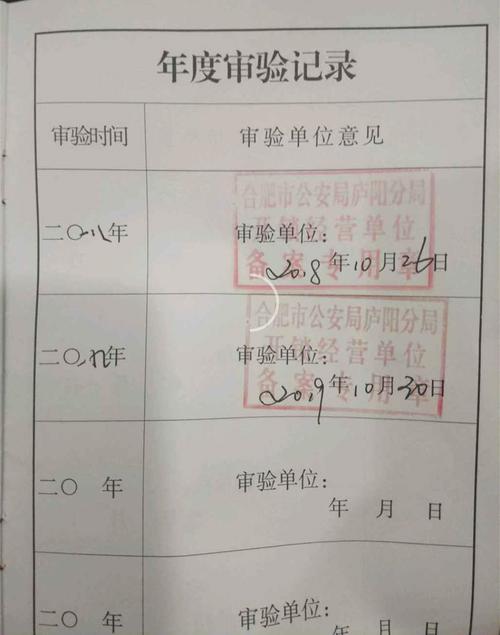 年度审验记录
审验时间 审验单位意见
合肥市公安局庐阳分局
开锁经营单位
备案专用章
二〇一八年 审验单位:
2018年10月26日
合肥市公安局庐阳分局
开锁经营单位
备案专用章
二〇一九年 审验单位:
2019年10月30日
二〇 年 审验单位:
年 月 日
二〇 年 审验单位:
年 月 日